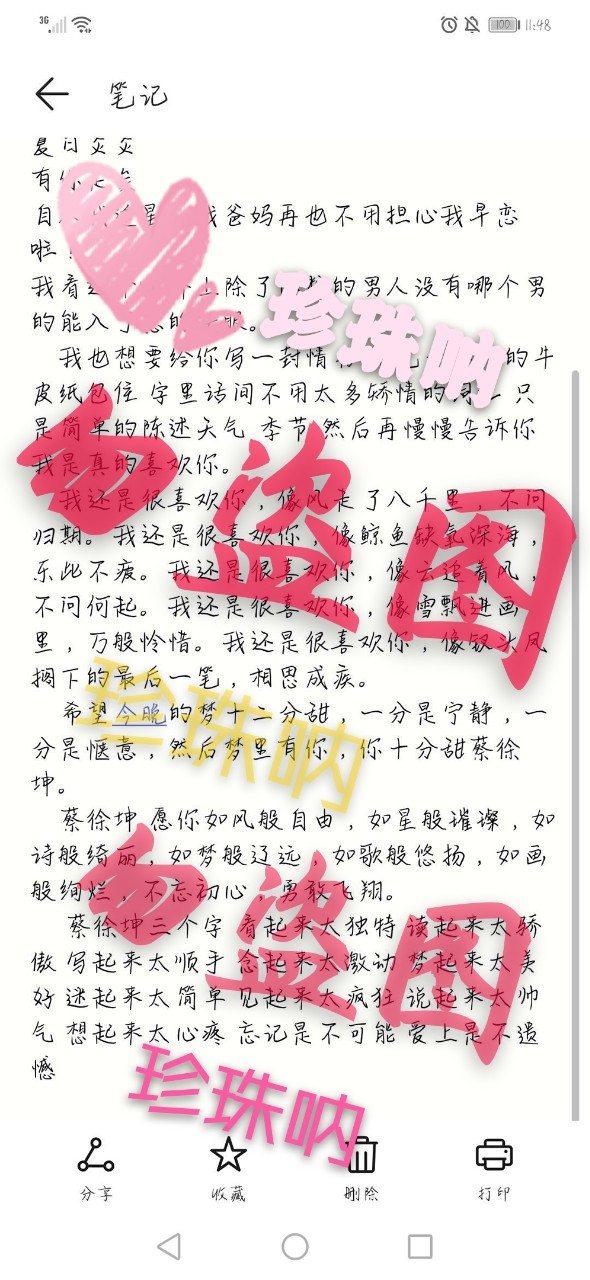 3G
100
11:48
笔记
夏日炎炎
有你
自 我爸妈再也不用担心我早恋
啦
我看 除了 的男人没有哪个男
的能入了 的 眼。
珍珠呐
我也想要给你写一封情 的牛
皮纸包住 字里话间不用太多矫情的词 只
是简单的陈述天气 季节 然后再慢慢告诉你
我是真的喜欢你。
勿盗图
我还是很喜欢你，像风走了八千里，不问
归期。我还是很喜欢你，像鲸鱼缺氧深海，
乐此不疲。我还是很喜欢你，像云追着风，
不问何起。我还是很喜欢你，像雪飘进画
里，万般怜惜。我还是很喜欢你，像钗头凤
搁下的最后一笔，相思成疾。
珍珠呐
希望今晚的梦十二分甜，一分是宁静，一
分是惬意，然后梦里有你，你十分甜蔡徐
坤。
蔡徐坤 愿你如风般自由，如星般璀璨，如
诗般绮丽，如梦般辽远，如歌般悠扬，如画
般绚烂，不忘初心，勇敢飞翔。
勿盗图
蔡徐坤三个字 看起来太独特 读起来太骄
傲 写起来太顺手 念起来太激动 梦起来太美
好 迷起来太简单 见起来太疯狂 说起来太帅
气 想起来太心疼 忘记是不可能 爱上是不遗
憾
珍珠呐
分享
收藏
删除
打印